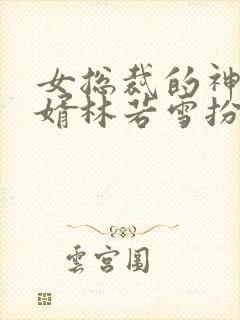 女总裁的神
婿林若雪扮
雲宮圖